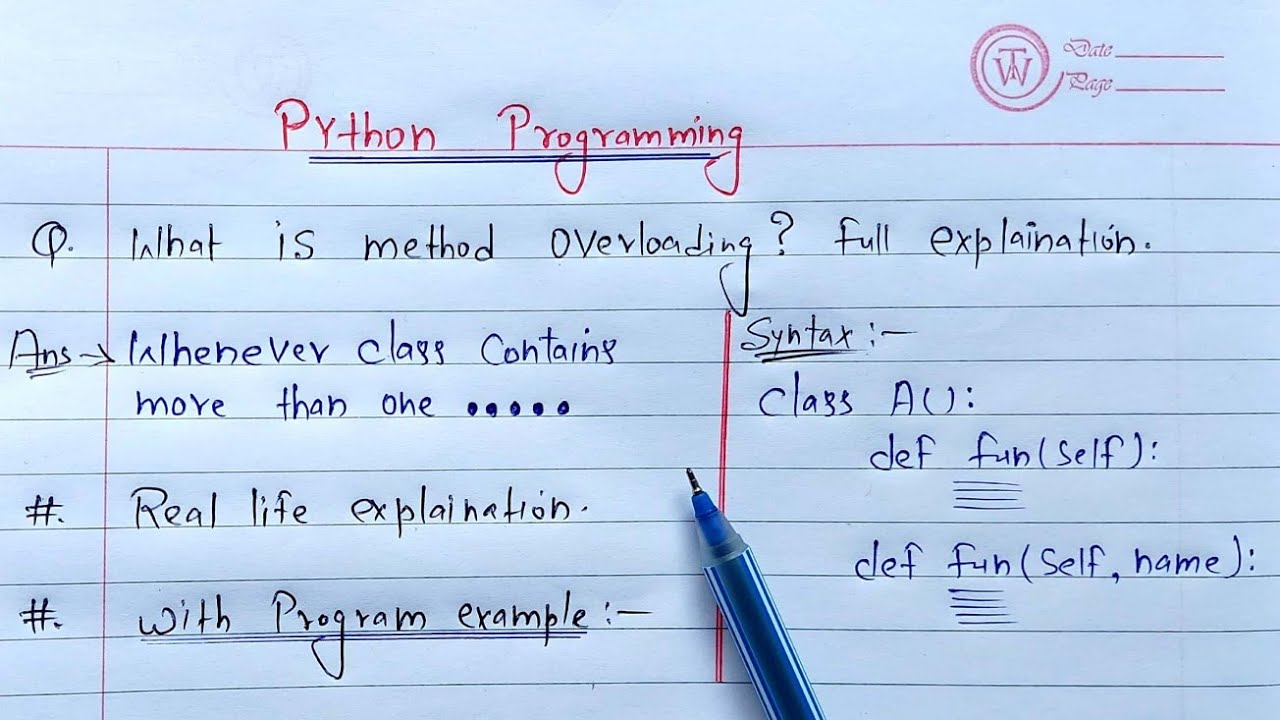 Date
Page
Python Programming
Q. What is method overloading? full explaination.
Ans → Whenever class contains
more than one .....
#. Real life explaination.
#. with Program example:-
Syntax:-
class A():
def fun(self):
def fun(self, name):